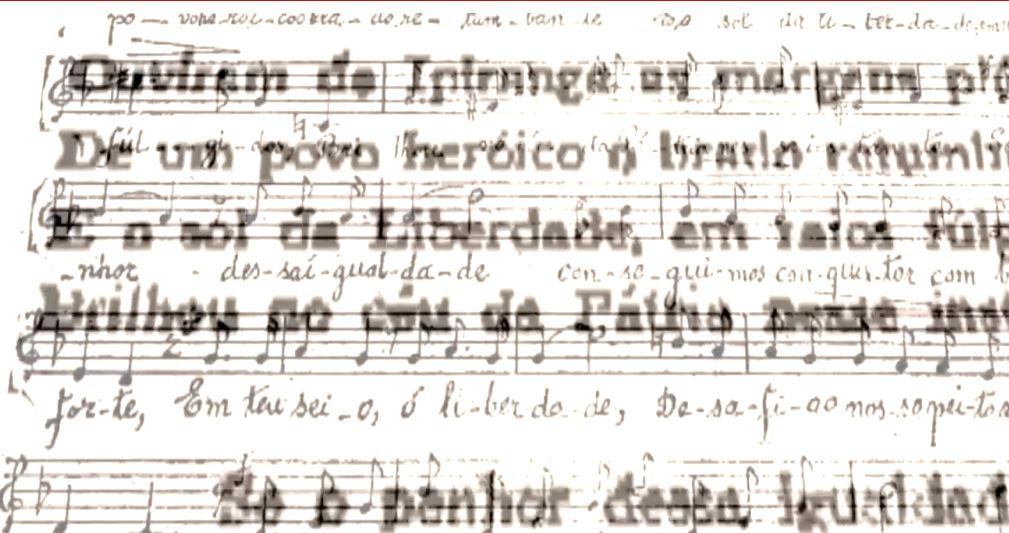 po - vohe-roi-coobra - do re - tum - ban - te sol da li - ber-da-de,em
Ouviram do Ipiranga as margens plá
De um povo heróico o brado retumb
fúl - gi - dos, Bri lhou
E o sol da Liberdade, em raios fúlg
-nhor - des-sai-gual-da-de con-se-gui-mos con-quis-tar com b
Brilhou no céu da Pátria nesse inst
for-te, Em teu sei-o, ó li-ber-da-de, De-sa-fi-ao nos-so pei-to a
Se o penhor dessa igualdad